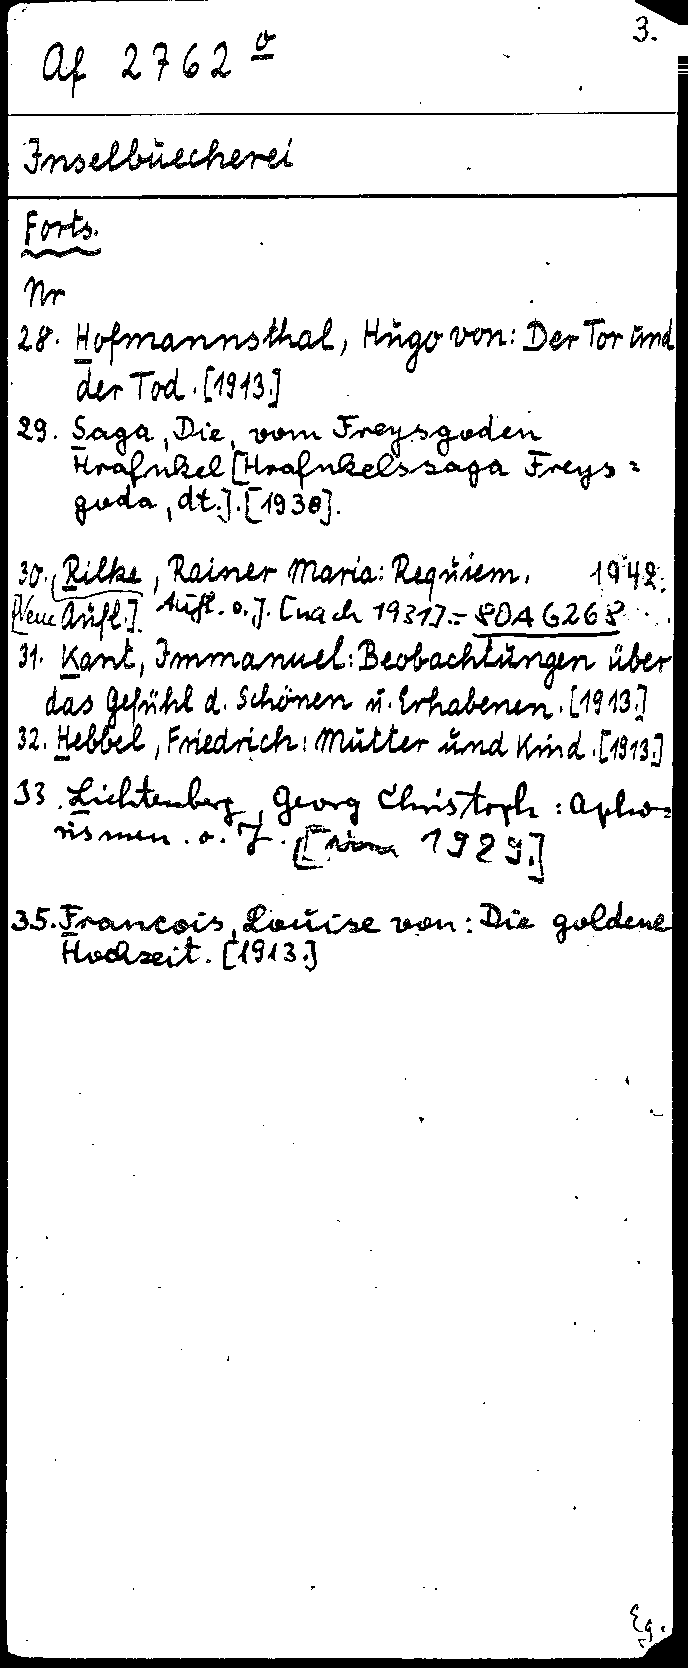 3.
Af 2762 o
Inselbuecherei
Forts.
Nr
28. Hofmannsthal, Hugo von: Der Tor und
der Tod. [1913.]
29. Saga, Die, vom Freysgoden
Hrafnkel [Hrafnkelssaga Freys=
goda, dt.]. [1938].
30. Rilke, Rainer Maria: Requiem. 1942.
[Neue Aufl.]. Aufl. o. J. [nach 1931]. = 80A6268
31. Kant, Immanuel: Beobachtungen über
das Gefühl d. Schönen u. Erhabenen. [1913.]
32. Hebbel, Friedrich: Mutter und Kind. [1913.]
33. Lichtenberg, Georg Christoph: Apho=
rismen. o. J. [ 1929.]
35. Francois, Louise von: Die goldene
Hochzeit. [1913.]
Eg.